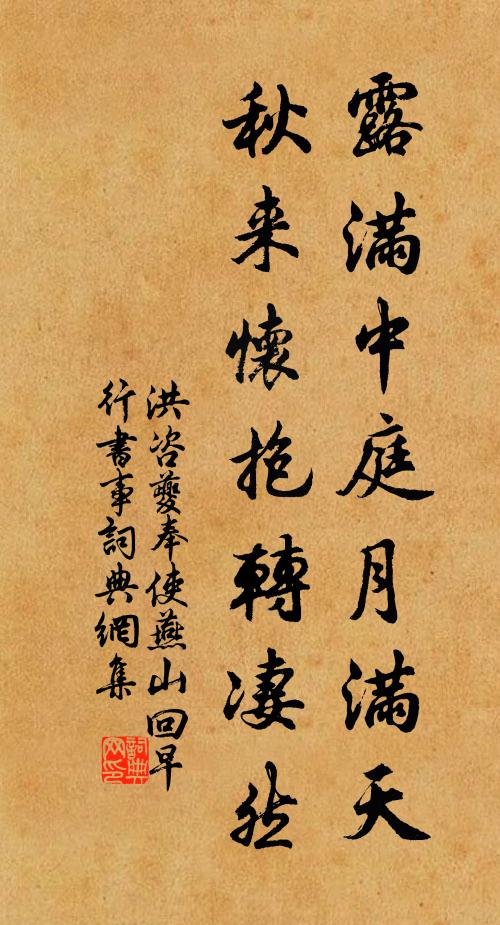 露滿中庭月滿天
秋来懷抱轉淒然
洪咨夔奉使燕山回早
行書事詞典網集
詞典网印